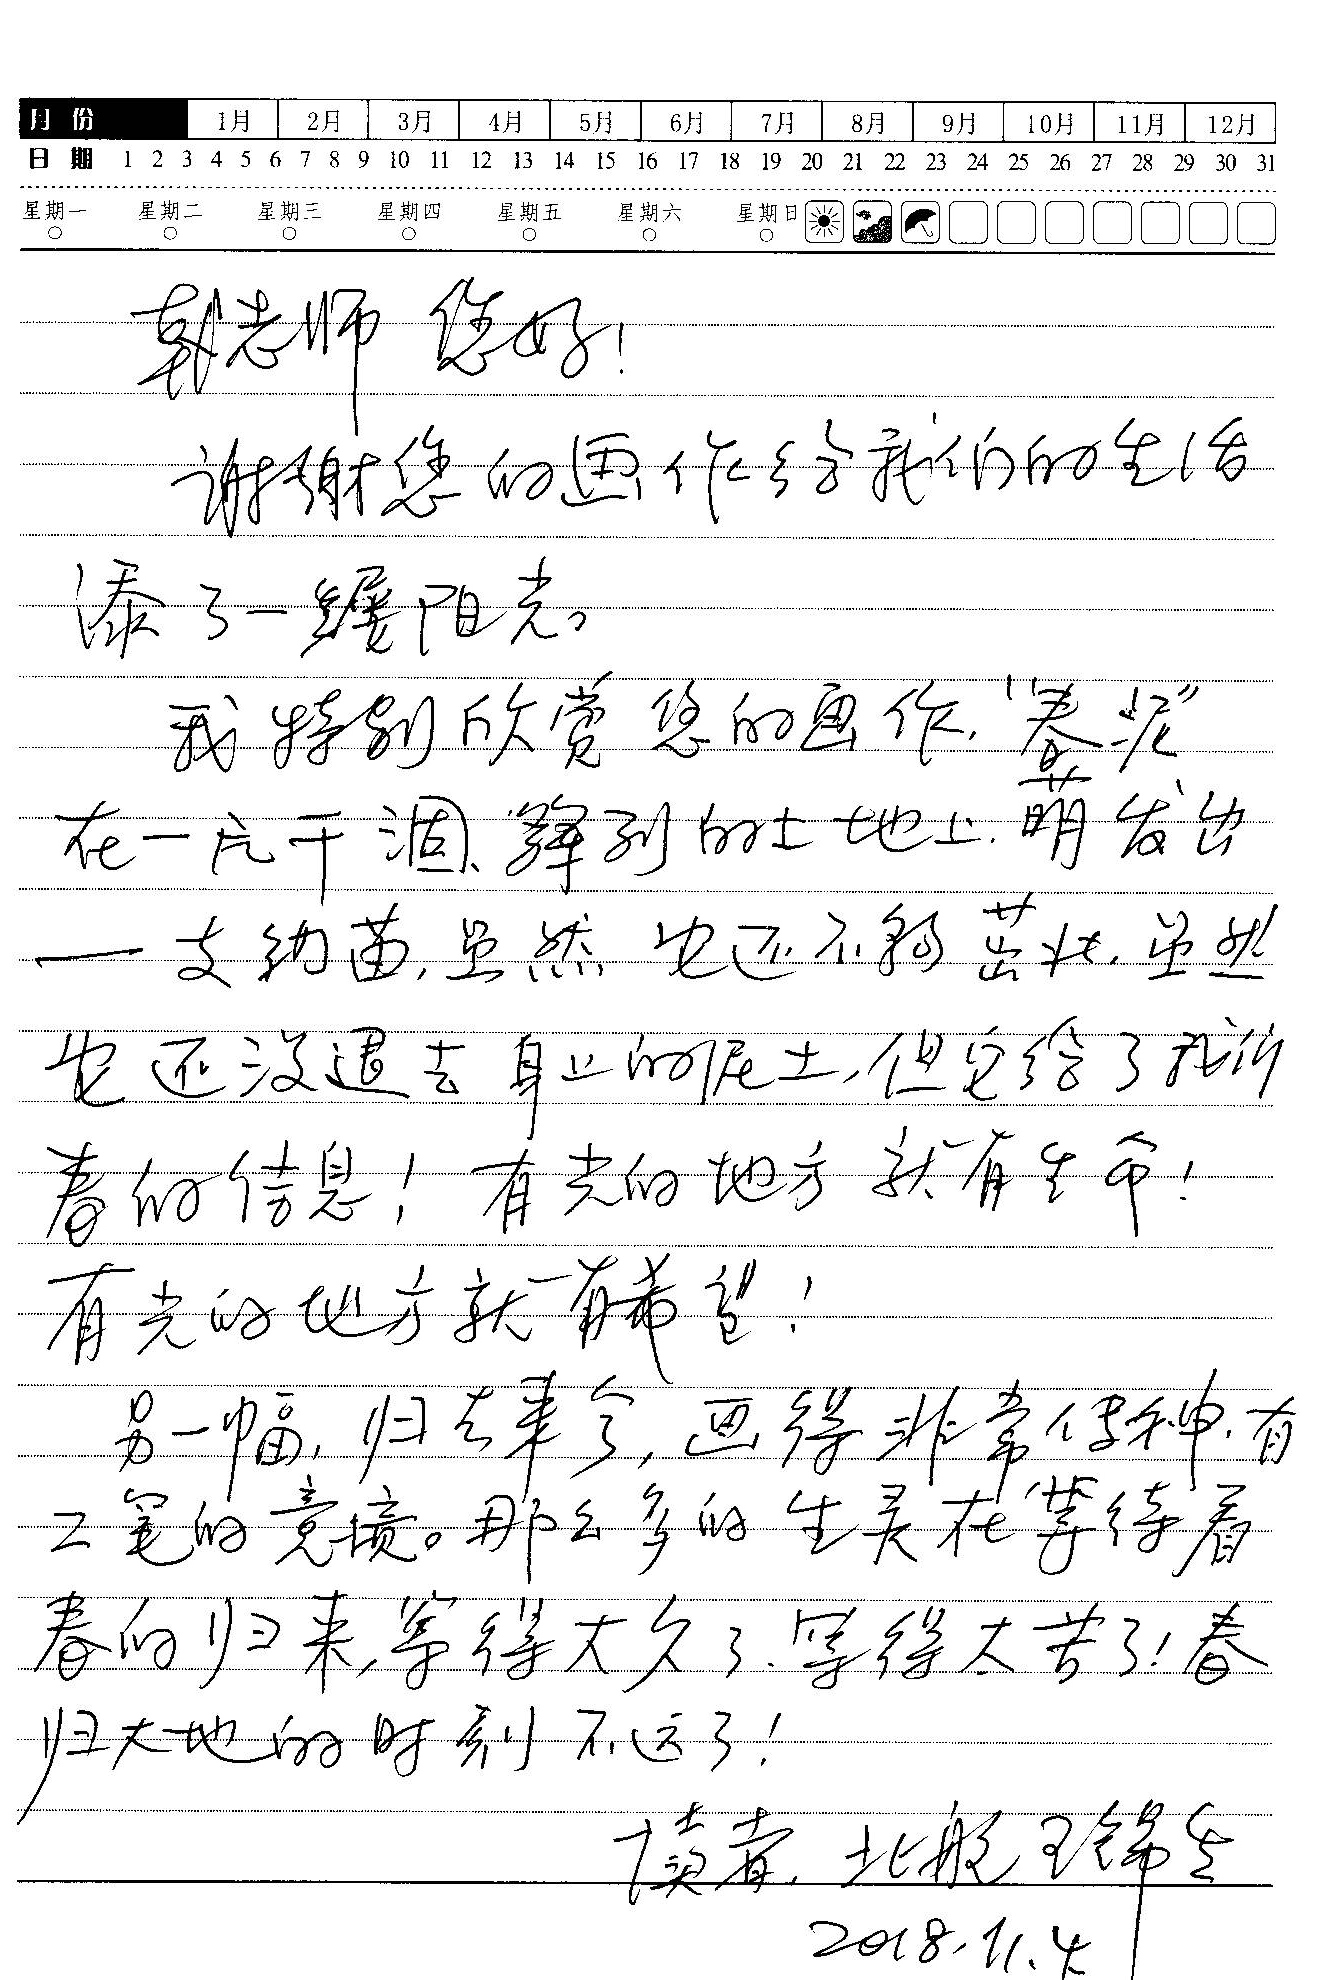 月 份 1月 2月 3月 4月 5月 6月 7月 8月 9月 10月 11月 12月
日 期 1 2 3 4 5 6 7 8 9 10 11 12 13 14 15 16 17 18 19 20 21 22 23 24 25 26 27 28 29 30 31
星期一 星期二 星期三 星期四 星期五 星期六 星期日
老师 您好!
谢谢您的画作给我们的生活
添了一缕阳光。
我特别欣赏您的画作,“春泥”
在一片干涸、的土地上,萌发出
一支幼苗,虽然也还不够茁壮,虽然
也还没退去身上的泥土,但它给了我们
春的信息!有光的地方就有生命!
有光的地方就有希望!
另一幅,归去来兮,画得非常传神,有
工笔的意境。那么多的生灵在等待着
春的归来,等得太久了,等得太苦了!春
归大地的时刻不远了!
读者,北航 王锦生
2018.11.4